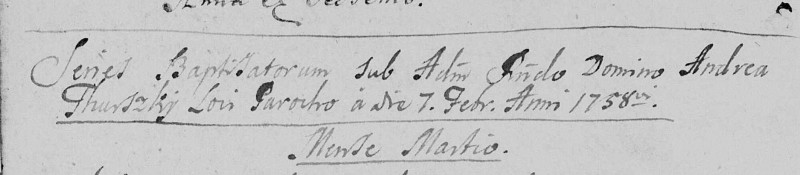 Series Baptisatorum sub Adm Rndo Domino Andrea
Thurszky Loci Parocho à die 7. Febr. Anni 1758vi.
Mense Martio.